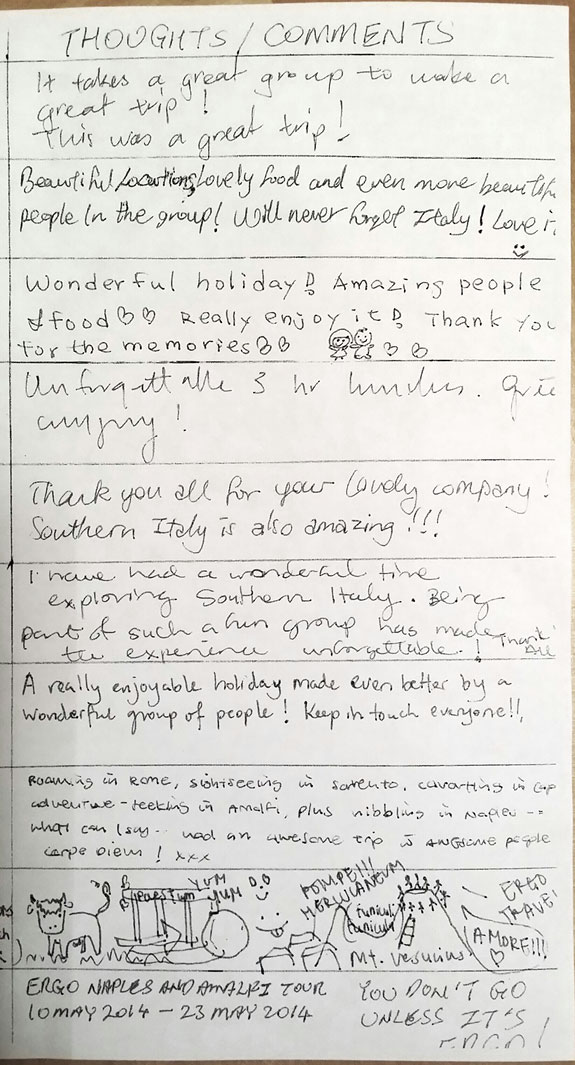 THOUGHTS / COMMENTS
It takes a great group to make a
great trip!
This was a great trip!
Beautiful Locations, Lovely food and even more beautiful
people in the group! Will never forget Italy! Love it
Wonderful holiday! Amazing people
& food Really enjoy it! Thank you
for the memories
Unforgettable 3 hr lunches. Great
company!
Thank you all for your lovely company!
Southern Italy is also amazing!!!
I have had a wonderful time
exploring Southern Italy. Being
part of such a fun group has made
the experience unforgettable! Thank
All
A really enjoyable holiday made even better by a
wonderful group of people! Keep in touch everyone!!
Roaming in Rome, sightseeing in Sorrento, cavorting in Cap
adventure-seeking in Amalfi, plus nibbling in Naples --
what can I say.. had an awesome trip awesome people
carpe diem! xxx
Paestum
YUM
YUM
POMPEII!
HERCULANEUM
funiculi
funicula
Mt. Vesuvius
ERGO
TRAVEL
AMORE!!!!
ERGO NAPLES AND AMALFI TOUR
10 MAY 2014 – 23 MAY 2014
YOU DON'T GO
UNLESS IT'S
ERGO!